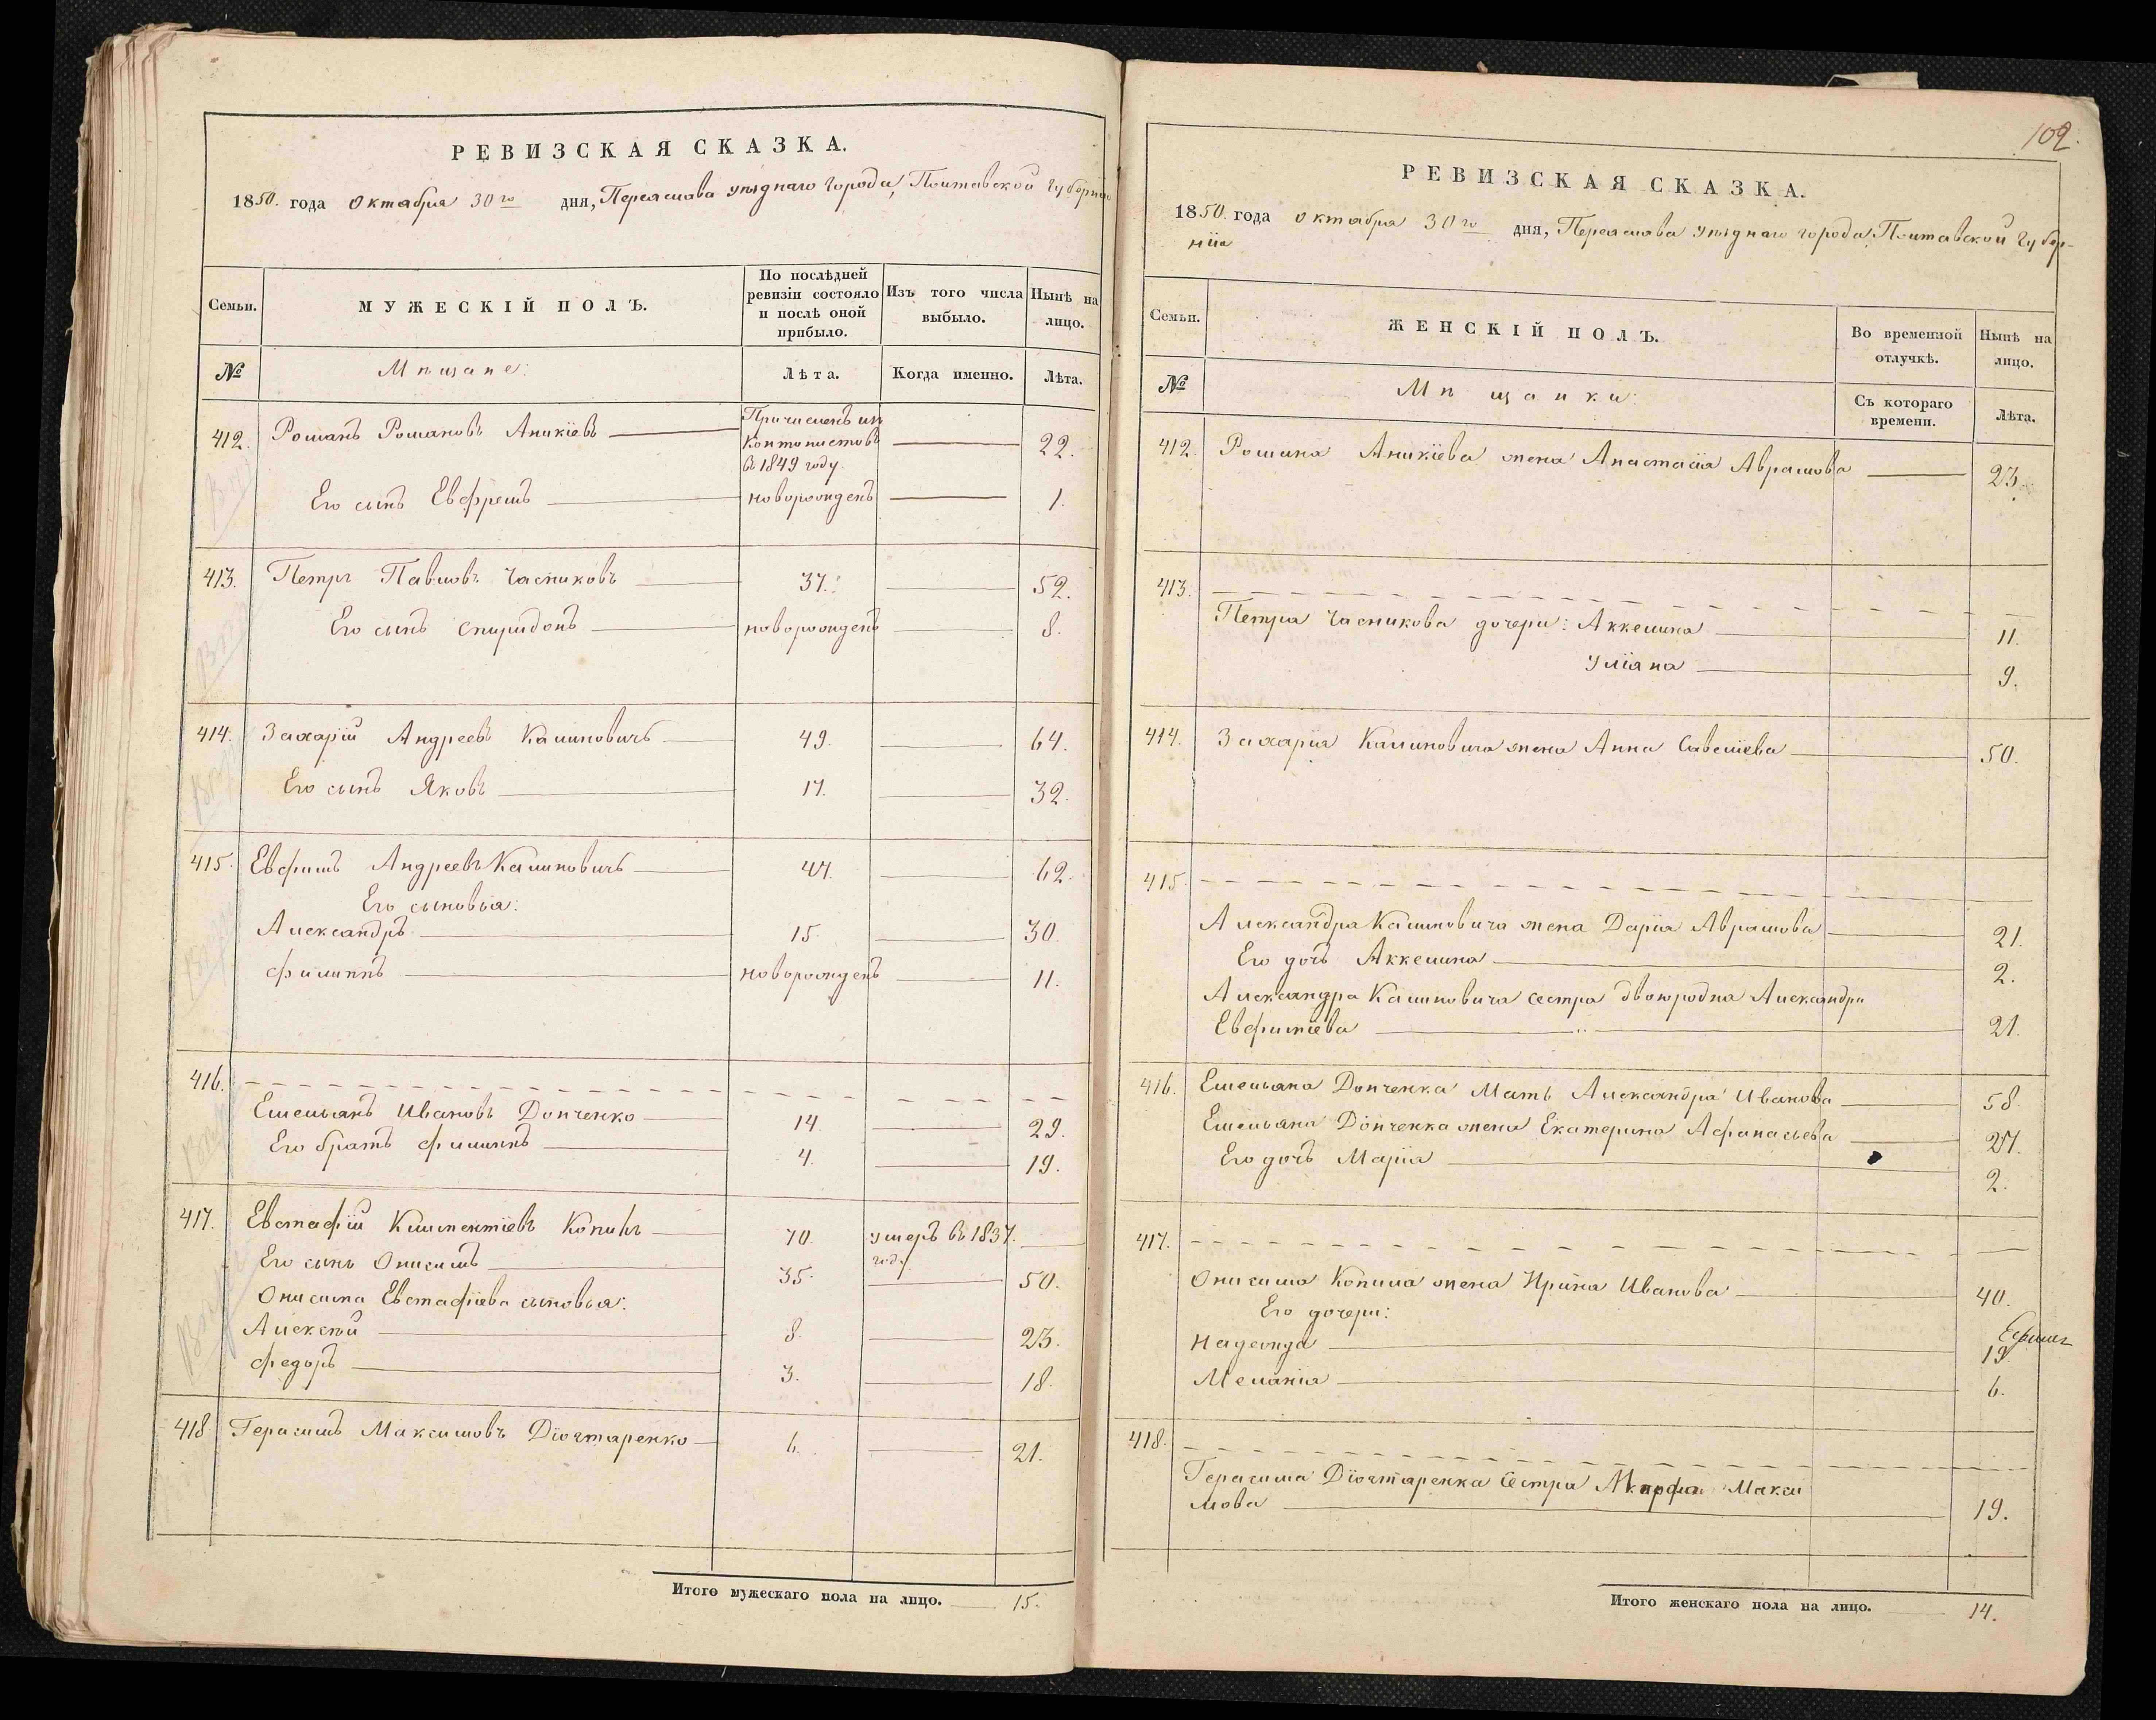 РЕВИЗСКАЯ СКАЗКА.
1850. года октября 30го дня, Переяслова уѣзднаго города, Полтавской губерніи
Семьи.
МУЖЕСКІЙ ПОЛЪ.
По послѣдней ревизіи состояло и послѣ оной прибыло.
Изъ того числа выбыло.
Нынѣ на лицо.
№
Мѣщане:
Лѣта.
Когда именно.
Лѣта.
412. Романъ Романовъ Аникіевъ Причисленъ изъ Кантонистовъ въ 1849 году. 22.
Его сынъ Евфремъ новорожденъ 1.
413. Петръ Павловъ Часниковъ 37. 52.
Его сынъ Спиридонъ новорожденъ 8.
414. Захарій Андреевъ Калиновичъ 49. 64.
Его сынъ Яковъ 17. 32.
415. Евфимъ Андреевъ Калиновичъ 47. 62.
Его сыновья:
Александръ 15. 30.
Филиппъ новорожденъ 11.
416.
Емельянъ Ивановъ Донченко 14. 29.
Его братъ Филиппъ 4. 19.
417. Евстафій Климентіевъ Копилъ 70. умеръ въ 1837. году.
Его сынъ Онисимъ 35. 50.
Онисима Евстафіева сыновья:
Алексѣй 8. 23.
Федоръ 3. 18.
418. Герасимъ Максимовъ Діогтаренко 6. 21.
Итого мужескаго пола на лицо. 15.
102.
РЕВИЗСКАЯ СКАЗКА.
1850. года октября 30го дня, Переяслова уѣзднаго города, Полтавской губер-
ніи
Семьи.
ЖЕНСКІЙ ПОЛЪ.
Во временной отлучкѣ.
Нынѣ на лицо.
№
Мѣщанки:
Съ котораго времени.
Лѣта.
412. Романа Аникіева жена Анастасія Аврамова 23.
413.
Петра Часникова дочери: Аккелина 11.
Уліяна 9.
414. Захарія Калиновича жена Анна Савеліева 50.
415.
Александра Калиновича жена Дарія Аврамова 21.
Его дочь Аккелина 2.
Александра Калиновича сестра двоюродна Александра
Евфиміева 21.
416. Емельяна Донченка Мать Александра Иванова 58.
Емельяна Донченка жена Екатерина Афанасьева 27.
Его дочь Марія 2.
417.
Онисима Копила жена Ирина Иванова 40.
Его дочери:
Надежда 19.
Меланія 6.
418.
Герасима Діогтаренка Сестра Марфа Макси
мова 19.
Итого женскаго пола на лицо. 14.